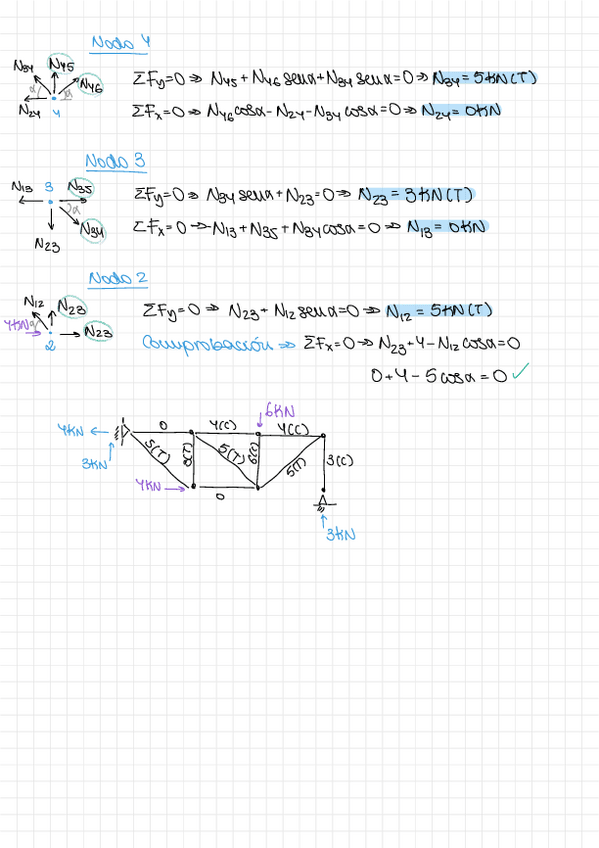 Nodo 4
N34 N45 N46
α α
N24 4
ΣFy=0 ⇒ N45 + N46 senα + N34 senα = 0 ⇒ N34 = 5kN (T)
ΣFx=0 ⇒ N46 cosα - N24 - N34 cosα = 0 ⇒ N24 = 0kN
Nodo 3
N13 3 N35
α
N34
N23
ΣFy=0 ⇒ N34 senα + N23 = 0 ⇒ N23 = 3kN (T)
ΣFx=0 ⇒ -N13 + N35 + N34 cosα = 0 ⇒ N13 = 0kN
Nodo 2
N12 N23
4kN α
2 N23
ΣFy=0 ⇒ N23 + N12 senα = 0 ⇒ N12 = 5kN (T)
Comprobación ⇒ ΣFx=0 ⇒ N23 + 4 - N12 cosα = 0
0 + 4 - 5 cosα = 0 ✓
6kN
4kN 0 4(C) 4(C)
3kN 5(T) (T) 5(T) 6(C) 5(T) 3(C)
4kN 0
3kN